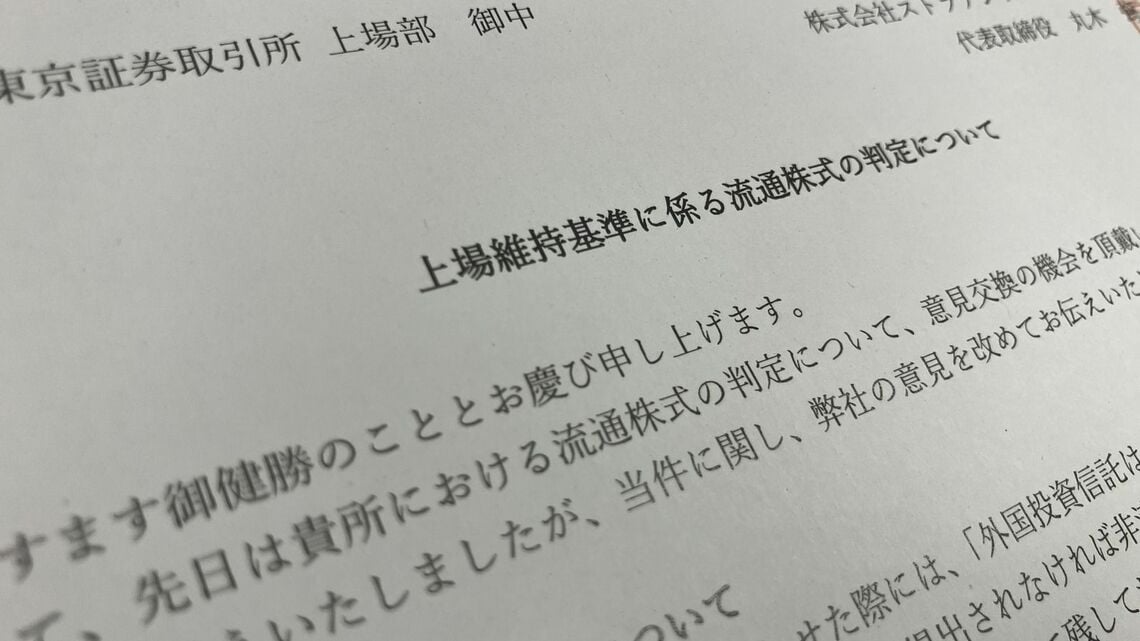 東京証券取引所 上場部 御中
株式会社ストラテジ
代表取締役 丸木
上場維持基準に係る流通株式の判定について
すます御健勝のこととお慶び申し上げます。
て、先日は貴所における流通株式の判定について、意見交換の機会を頂戴し
いたしましたが、当件に関し、弊社の意見を改めてお伝えいた
ついて
せた際には、「外国投資信託は
提出されなければ非
残して